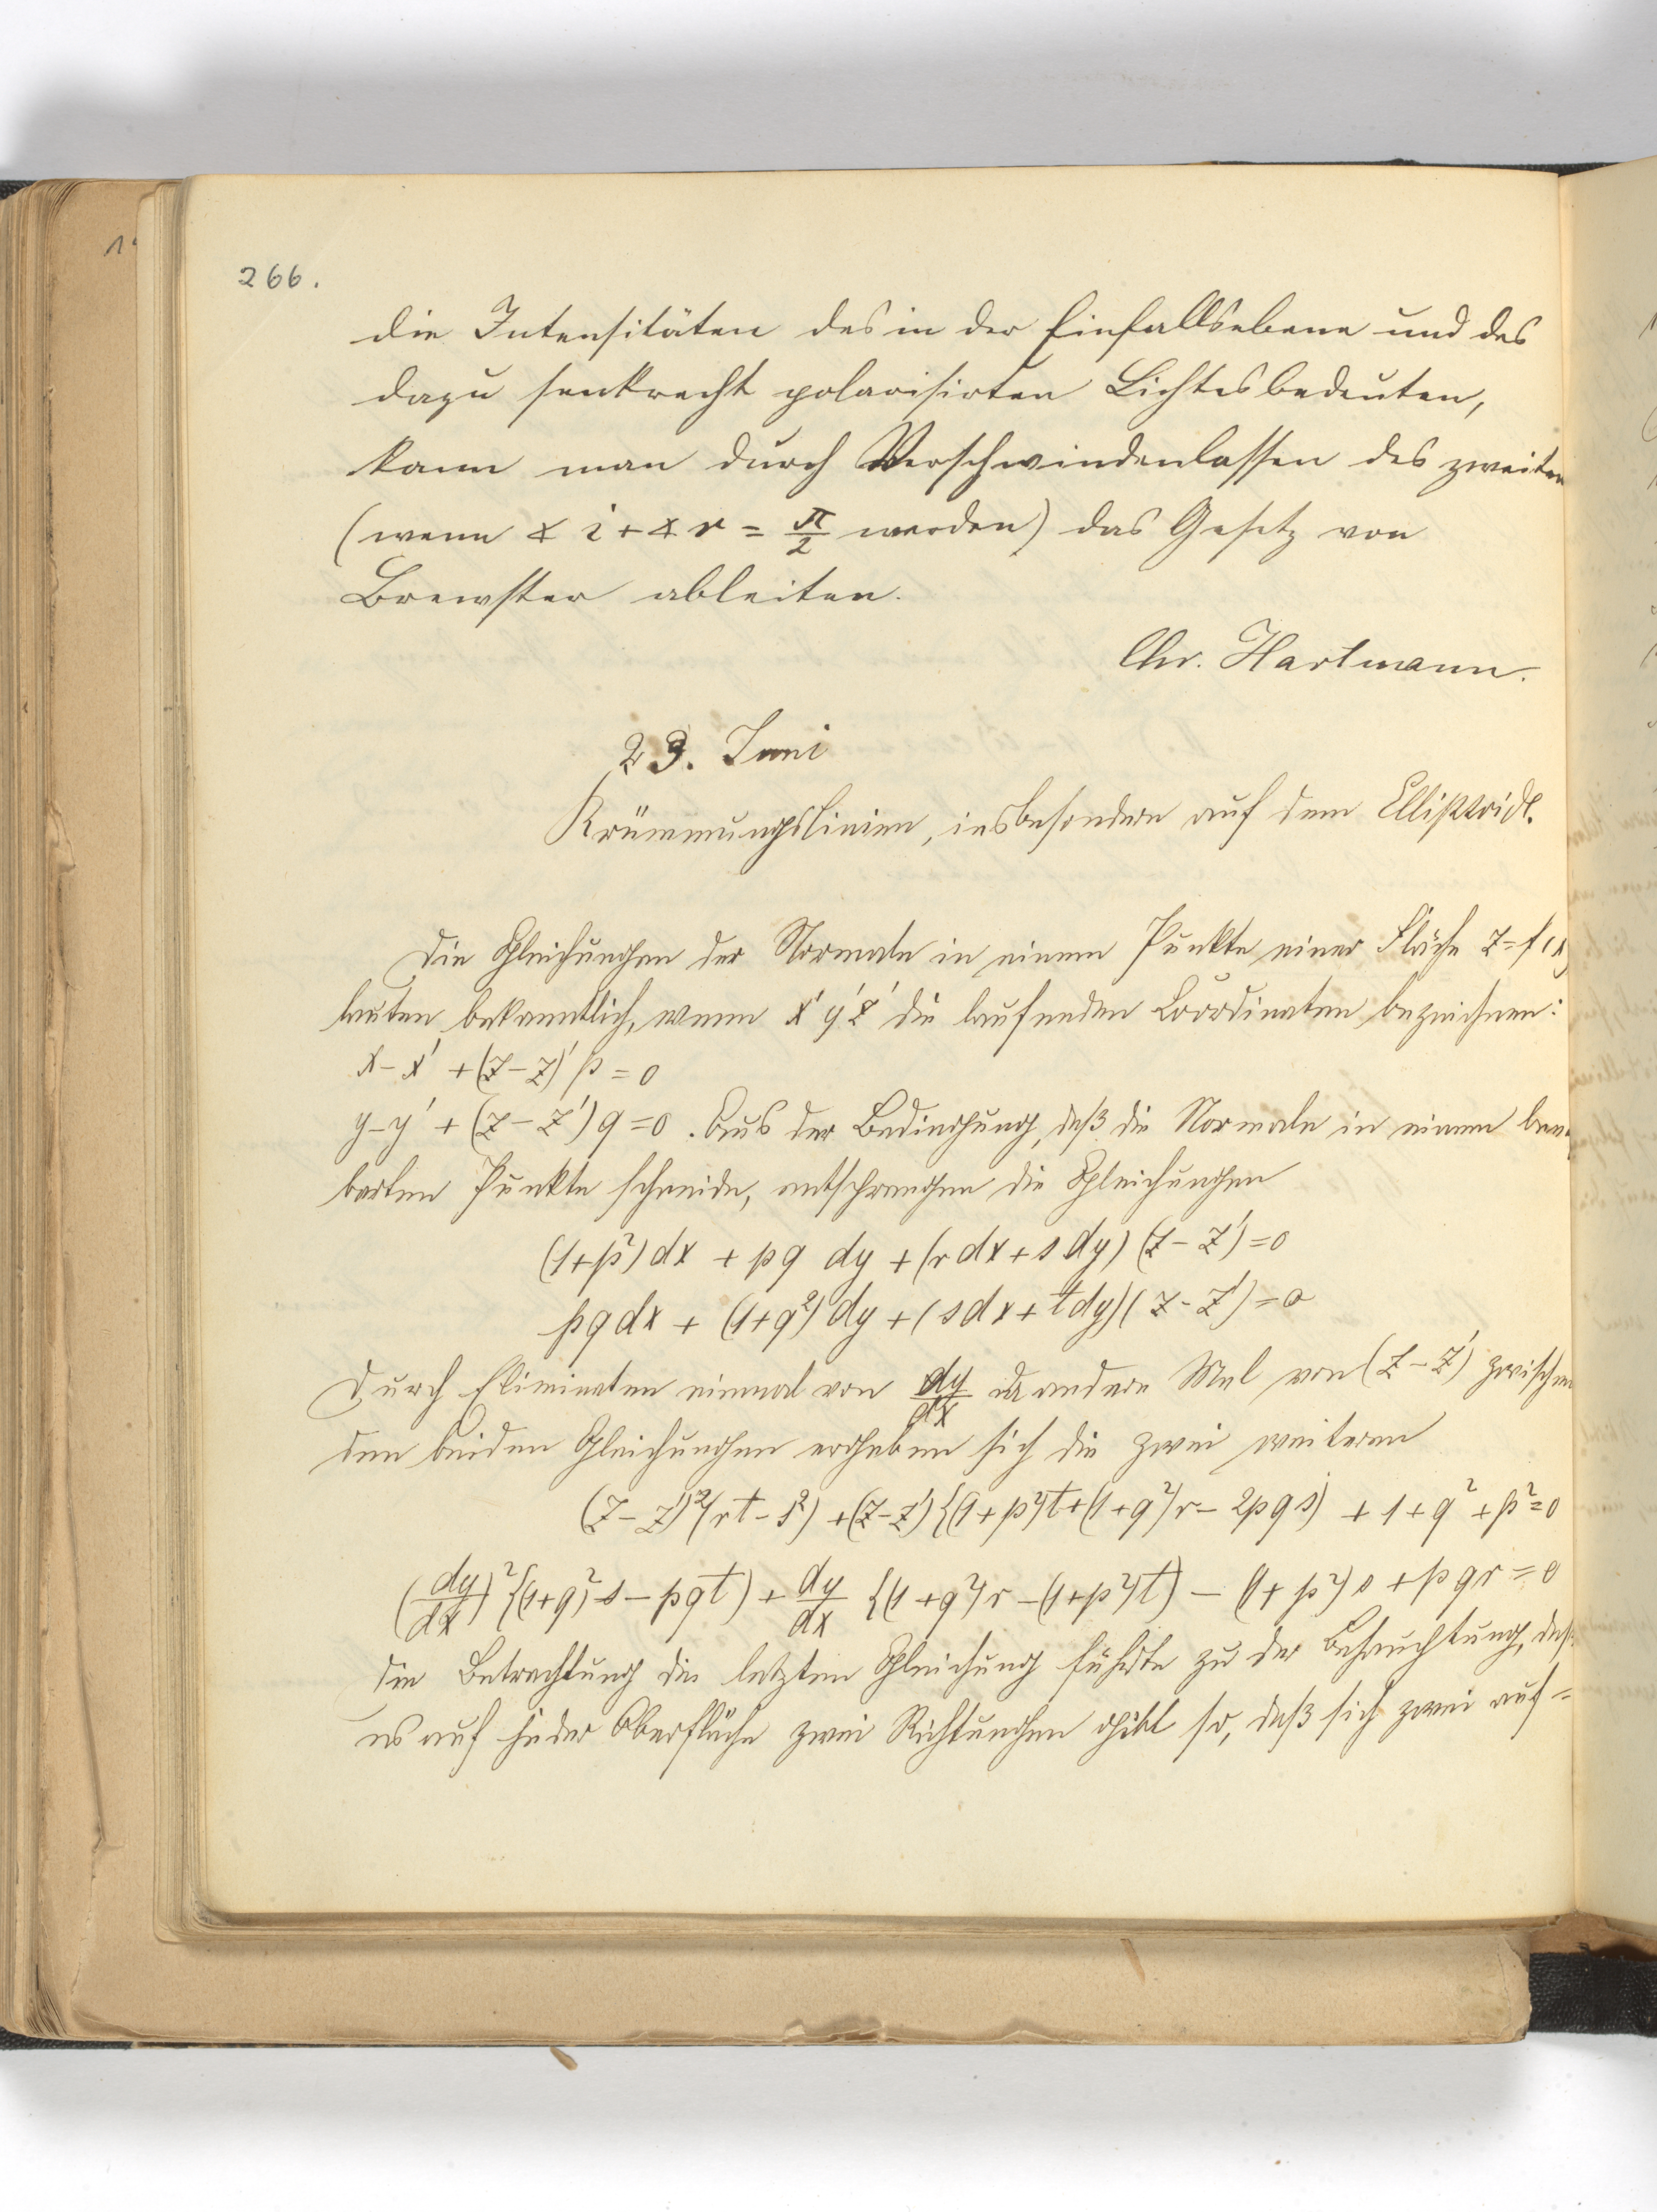 266.
die Intensitäten des in der Einfallsebene und des
dazu senkrecht polarisirten Lichtes bedeuten,
kann man durch Verschwindenlassen des zweiten
(wenn ∢ i + ∢ r = π/2 werden) das Gesetz von
Brewster ableiten.
Chr. Hartmann.
23. Juni
Krümmungslinien, insbesondere auf dem Ellipsoid.
Die Gleichungen der Normale in einem Punkte einer Fläche z = f(x
lauten bekanntlich, wenn x' y' z' die laufenden Coordinaten bezeichnen:
x - x' + (z - z)' p = 0
y - y' + (z - z') q = 0. Aus der Bedingung, daß die Normale in einem
barten Punkte schneide, entsprangen die Gleichungen
(1+p²) dx + pq dy + (r dx + s dy) (z - z') = 0
pq dx + (1+q²) dy + (s dx + t dy) (z - z') = 0
Durch Eliminaten einmal von dy/dx andere Mal von (z - z') zwischen
den beiden Gleichungen ergeben sich die zwei weiteren
(z - z')² (rt - s²) + (z - z') {(1+p²)t + (1+q²)r - 2pqs) + 1 + q² + p² = 0
(dy/dx)² {(1+q²) s - pqt) + dy/dx {(1+q²)r - (1+p²)t) - (1+p²) s + pqr = 0
Die Betrachtung der letzten Gleichung führte zu der daß
es auf jeder Oberfläche zwei Richtungen gibt so, daß sich zwei auf=